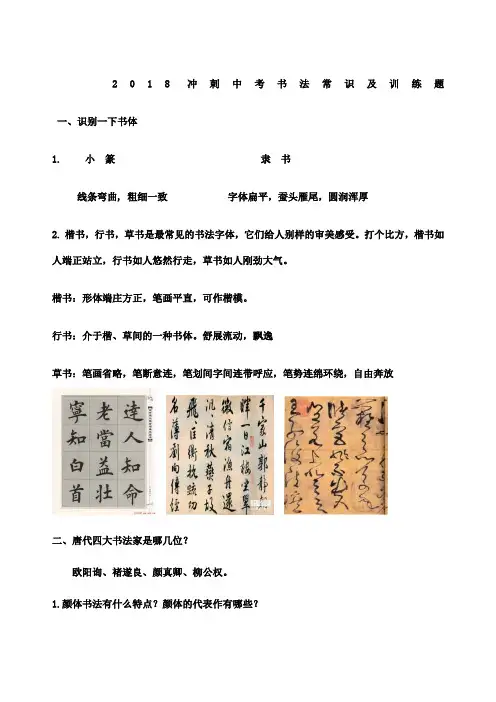 2018冲刺中考书法常识及训练题
一、识别一下书体
1. 小篆 隶书
线条弯曲, 粗细一致 字体扁平，蚕头雁尾，圆润浑厚
2. 楷书，行书，草书是最常见的书法字体，它们给人别样的审美感受。打个比方，楷书如
人端正站立，行书如人悠然行走，草书如人刚劲大气。
楷书：形体端庄方正，笔画平直，可作楷模。
行书：介于楷、草间的一种书体。舒展流动，飘逸
草书：笔画省略，笔断意连，笔划间字间连带呼应，笔势连绵环绕，自由奔放
達人知命
老當益壯
寧知白首
千家山郭靜
暉一日江樓坐翠
微信宿漁舟還
汎清秋燕子故
飛匡衡抗疏功
名薄劉向傳經
二、唐代四大书法家是哪几位？
欧阳询、褚遂良、颜真卿、柳公权。
1.颜体书法有什么特点？颜体的代表作有哪些？